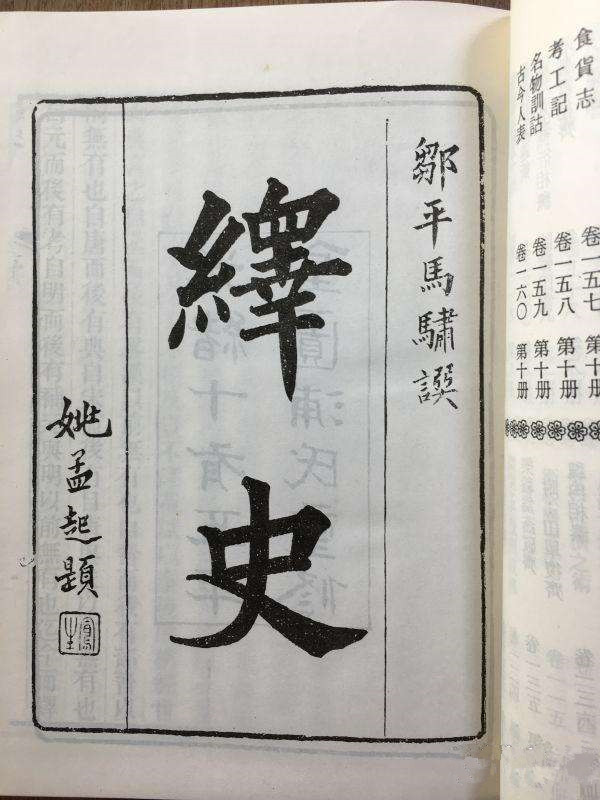 食貨志 卷一五七 第十册
考工記 卷一五八 第十册
名物訓詁 卷一五九 第十册
古今人表 卷一六〇 第十册
鄒平馬驌譔
繹史
姚孟起題